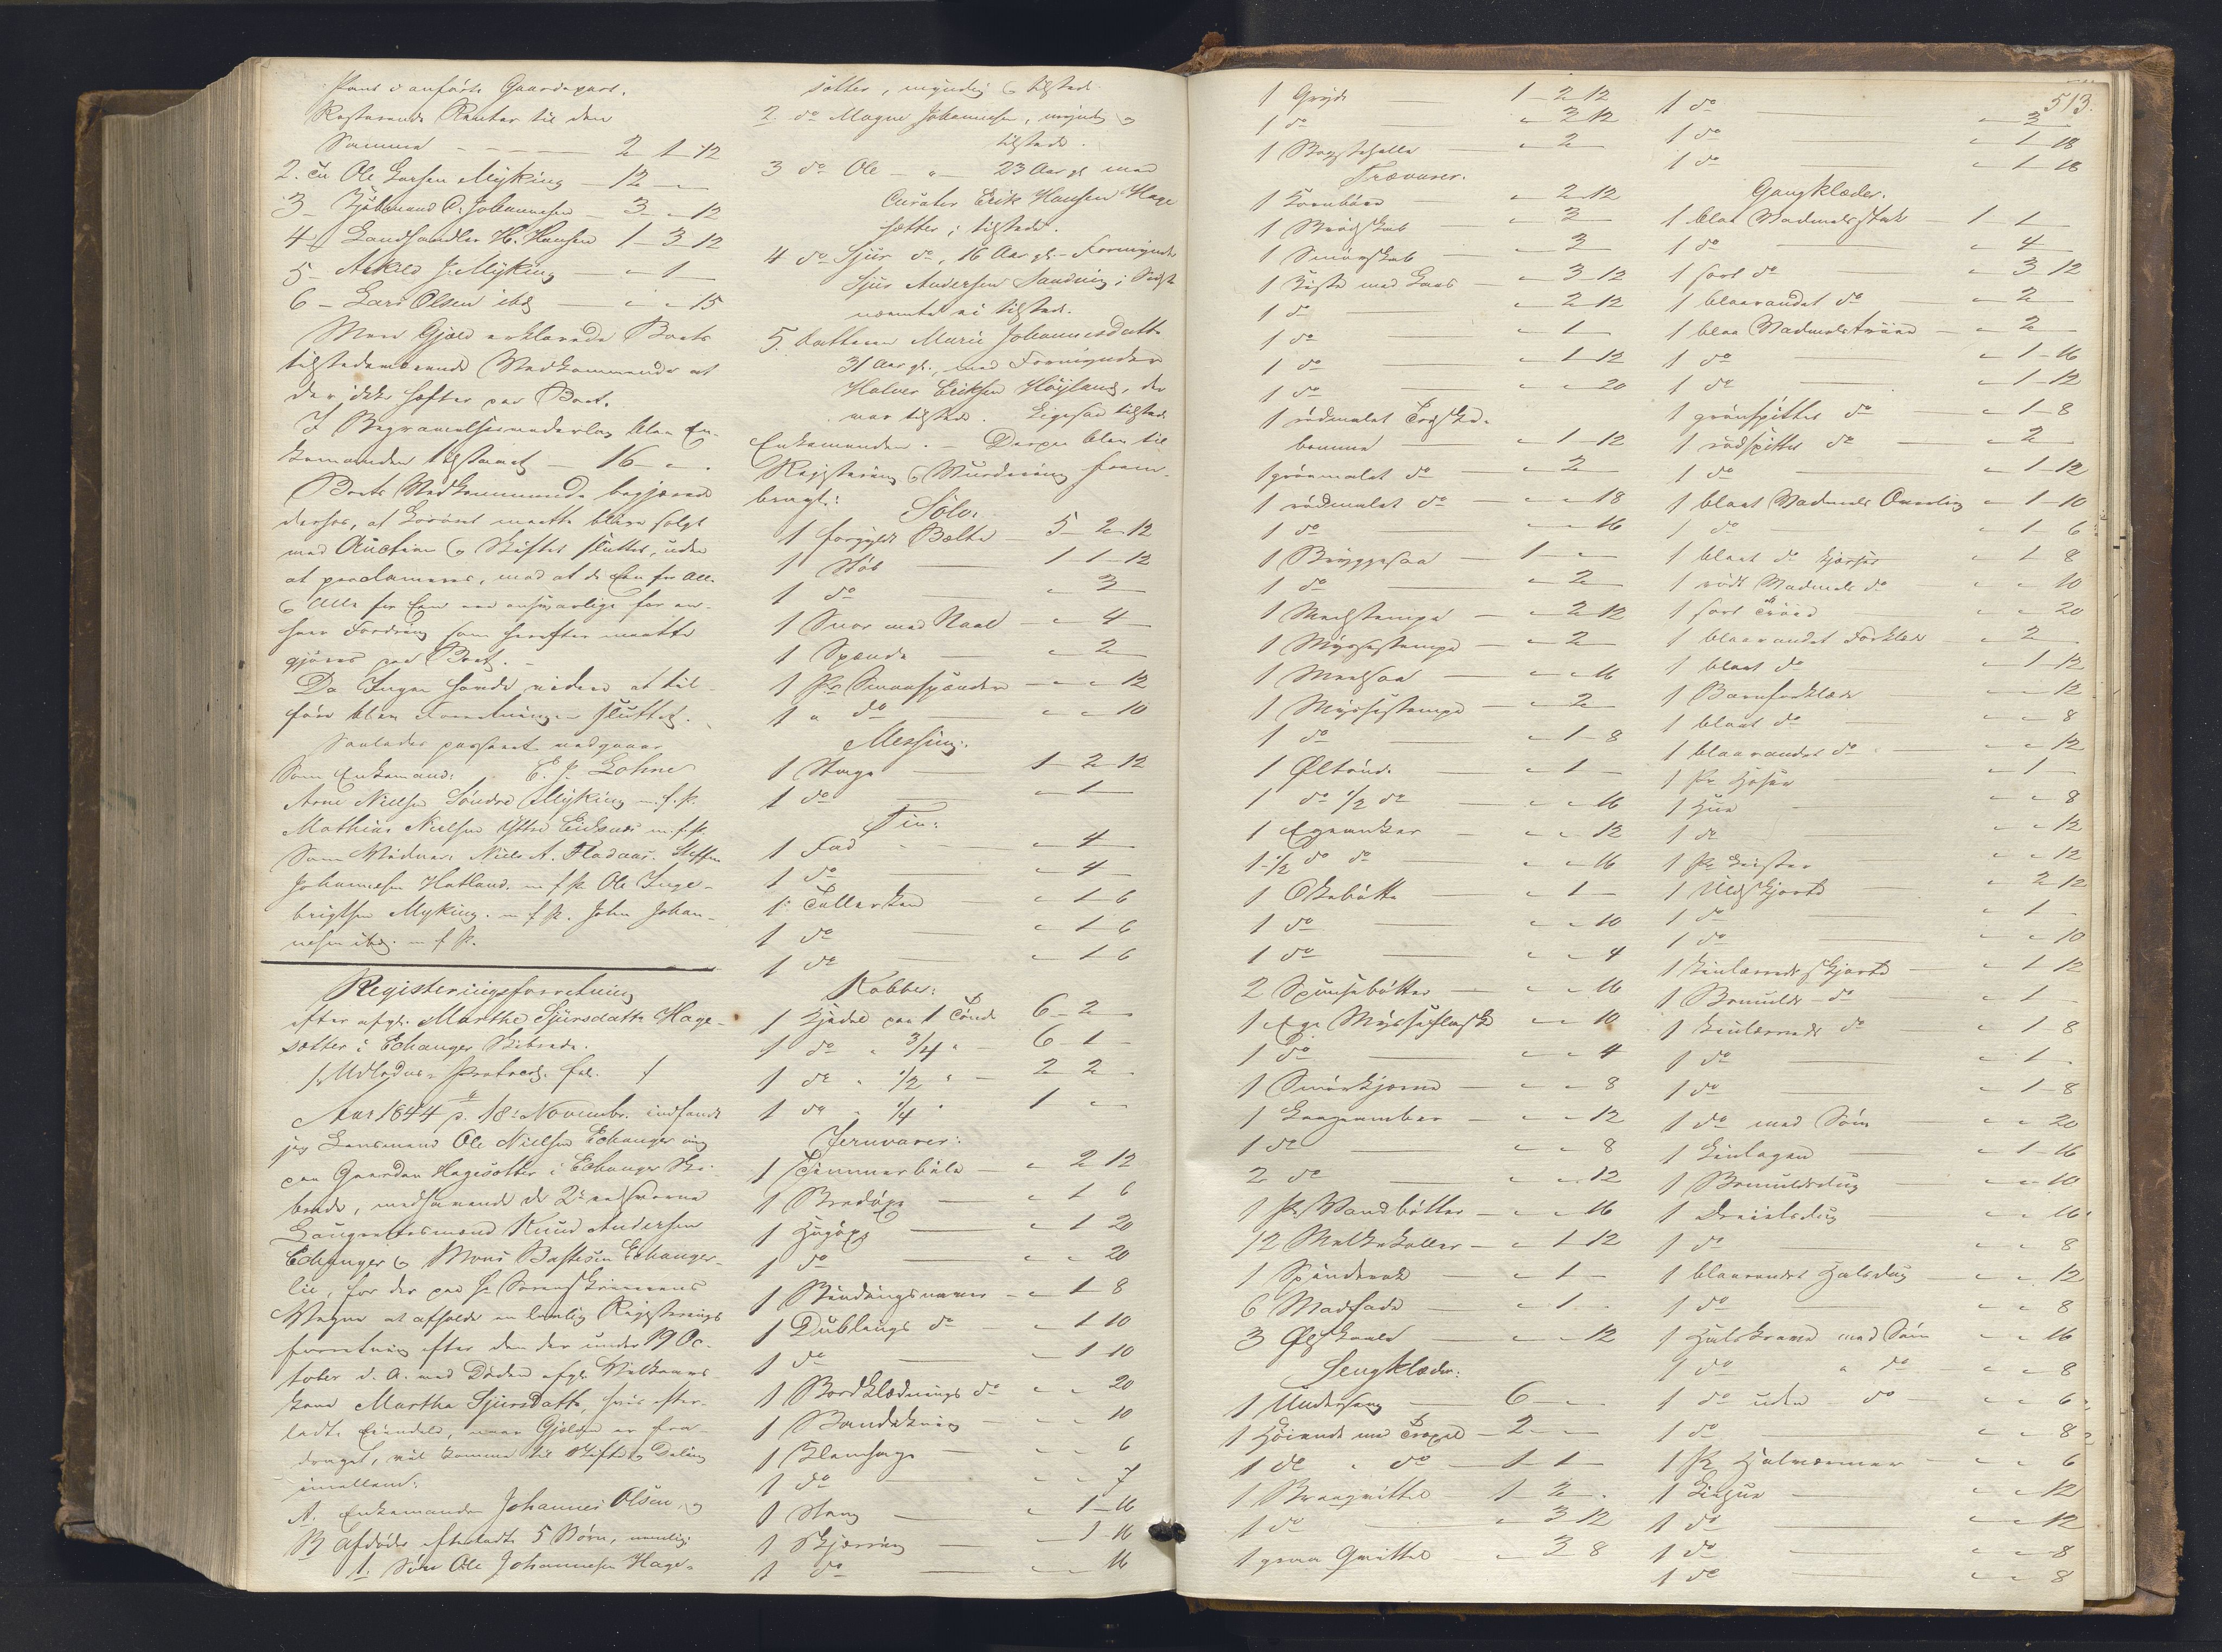 Pant i anførte Gaardepart.
Resterende Renter til den
Samme - - - - 2 1 12
2. til Ole Larsen Myking - 12 - "
3 - Kjøbmand D. Johannesen - 3 - " 12
4 " Landhandler H. Hansen 1 - 3 12
5 - Askild J. Myking - " 1 -
6 - Lars Olsen ibd - " " 15
Mere Gjæld erklærede Boets
tilstedeværende Vedkommende at
der ikke hæfter paa Boet.
I Begravelsesvederlag blev En-
kemanden tilstaaet - 16 - " .
Boets Vedkommende begjærede
derhos, at Løsøret maatte blive solgt
ved Auction og Skiftet sluttet, uden
at proclameres, mod at de Een for Alle
og Alle for Een ere ansvarlige for en-
hver Fordring som herefter maatte
gjøres paa Boet. -
Da Ingen havde videre at til-
føre blev Forretningen sluttet.
Saaledes passeret vedgaaer
Som Enkemand: E. J. Lohne
Arne Nielsen Søndre Myking m. f. P.
Mathias Nielsen Yttre Eiknes m. f. P.
Som Vidner: Niels A. Fladaas. Steffen
Johannesen Hatland. m f P. Ole Inge-
brigtsen Myking. m f P. John Johan-
nesen ibd. m f P.
Registeringsforretning
efter afgl. Marthe Sjursdatter Hage-
sætter i Echanger Skibrede.
/: Udlodn: Protocol. fol. /
Aar 1844 d. 18: Novembr. indfandt
jeg Lensmand Ole Nielsen Echanger mig
paa Gaarden Hagesætter i Echanger Ski-
brede, medhavende de 2de eedsvorne
Laugrettesmænd Knud Andersen
Echanger og Mons Bastesen Echanger-
lie, for der paa Hr. Sorenskriverens
Vegne at afholde en lovlig Registerings
forretning efter den der under 19 Oc-
tober d. A. ved Døden afgl. Velkones-
kone Marthe Sjursdatter, hvis efter-
ladte Eiendele, naar Gjælden er fra-
draget, vil komme til Skifte og Deling
imellem:
A. Enkemanden Johannes Olsen, og
B. Afdødes efterladte 5 Børn, nemlig:
1. Søn Ole Johannesen Hage-
sætter, myndig og tilstede
2. do Magne Johannesen, myndig og
tilstede.
3 do Ole - " - 23 Aar gl. med
Curator Erik Hansen Hage
sætter; tilstede.
4 do Sjur do, 16 Aar gl. - Formynder
Sjur Andersen Sandvig; Sidst
nævnte ei tilstede.
5. Datteren Marie Johannesdatter
31 Aar gl., med Formynder
Halver Eriksen Høyland, der
var tilstede. Ligesaa tilstede
Enkemanden. - Derpaa blev til
Registering og Vurdering frem-
bragt:
Sølv:
1 forgyldt Bælte - 5 - 2 - 12
1 Støb - 1 - 1 - 12
1 do - " 3 -
1 Snor med Naal - " 4 -
1 Spænde - " 2 -
1 Pr Smaaspænder - " " 12
1 " do - " " 10
Messing:
1 Stage - 1 - 2 - 12
1 do - " 1 -
Tin:
1 Fad - " 4 -
1 do - " 4 -
1 Tallerken - " 1 6
1 do - " 1 6
1 do - " 1 6
Kobber:
1 Kjedel paa 1 Tønde 6 - 2 -
1 do " 3/4 " - 6 - 1 -
1 do " 1/2 " - 2 2 -
1 do " 1/4 " 1 " -
Jernvarer:
1 Tømmerbile - " 2 12
1 Bredøxe - " 1 6
1 Hugøxe - " 1 20
1 do - " " 20
1 Bindingsnaver - " 1 8
1 Dublings do - " 1 10
1 do - " 1 10
1 Bordklædnings do - " " 20
1 Baandkniv - " " 10
1 Klamhage - " " 6
1 do - " " 7
1 Stang - " 1 - 16
1 Skjæring - " 1 16
1 do - " " 16
513.
1 Gryde - 1 - 2 12
1 do - " 2 12
1 Bagstehelle - " 2 -
Trævarer.
1 Kornbøre - " 2 12
1 Brødskab - " 3 -
1 Smørskab - " 3 -
1 Kiste med Laas - " 3 - 12
1 do - " 2 12
1 do - " 1 -
1 do - " 1 12
1 do - " " 20
1 rødmalet Træske-
bomme - " 1 - 12
1 grønmalet do - " 2 -
1 rødmalet do - " " 18
1 do - " " 16
1 Bryggesaa - 1 - "
1 do - " 2 -
1 Mæskestampe - " 2 12
1 Myssestampe - " 2 -
1 Meelsaa - " " 16
1 Myssestampe - " 2 -
1 do - " 1 - 8
1 Øltønde - " 1 -
1 do 1/2 do - " " 16
1 Egeanker - " " 12
1 1/2 do do - " " 16
1 Okebøtte - " 1 -
1 do - " " 10
1 do - " " 4
2 Spinsebøtter - " " 16
1 Ege Myssesflaske " " 10
1 do - " " 4
1 Smørkjerne - " " 8
1 Langeamber - " " 12
1 do - " " 8
2 do - " " 12
1 Pr Vandbøtter - " " 16
12 Melkekoller - " 1 12
1 Spinderok - " 1 -
6 Madfade - " 1 -
3 Ølskaale - " " 12
Sengklæder:
1 Underseng - 6 - "
1 Høiende med Trøgel - 2 - "
1 do " do - 1 - 1 -
1 Brogvittel - 1 2 .
1 do - " 3 12
1 graa Qvittel - " 3 8
1 do - " 3
1 do - " 1 - 18
1 do - " 1 - 18
Gangklæder.
1 blaa Vadmelsstak - 1 - 1 -
1 do - " 4 -
1 sort do - " 3 12
1 blaarandet do - " 2 -
1 blaa Vadmelstrøie - " 2 -
1 do - " 1 - 16
1 do - " 1 - 12
1 grønspittet do - " 1 - 8
1 rødspittet do - " 2 -
1 do - " 1 - 12
1 blaat Vadmels Overliv " 1 - 10
1 do - " 1 6
1 blaat do Kjørsel " 1 8
1 rødt Vadmels do " " 10
1 sort Trøie " " 20
1 blaarandet Forklæde " 2 -
1 blaat do - " 1 12
1 Barnforklæde - " " 12
1 blaat do - " " 8
1 blaarandet do - " " 12
1 Pr Hoser - " 1 -
1 Hue - " " 8
1 do - " " 12
1 Pr Leister - " " 12
1 Uldskjorte - " 2 12
1 do - " 1 -
1 do - " " 10
1 Linlærredsskjorte - " 1 12
1 Bomulds do - " 1 -
1 Linlærreds do - " 1 8
1 do - " 1 -
1 do - " 1 - 8
1 do med Søm - " " 20
1 Linlagen - " 1 - 16
1 Bomuldsdug - " " 10
1 Dreielsdug - " " 16
1 do - " " 8
1 blaarandet Halsdug - " " 12
1 do - " " 8
1 Halskrave med Søm " " 16
1 do " do - " " 8
1 do uden do - " " 6
1 do - " " 8
1 Pr Halværmer - " " 6
1 Linhue - " " 12
1 do - " " 12
1 do - " " 8
1 do - " " 8